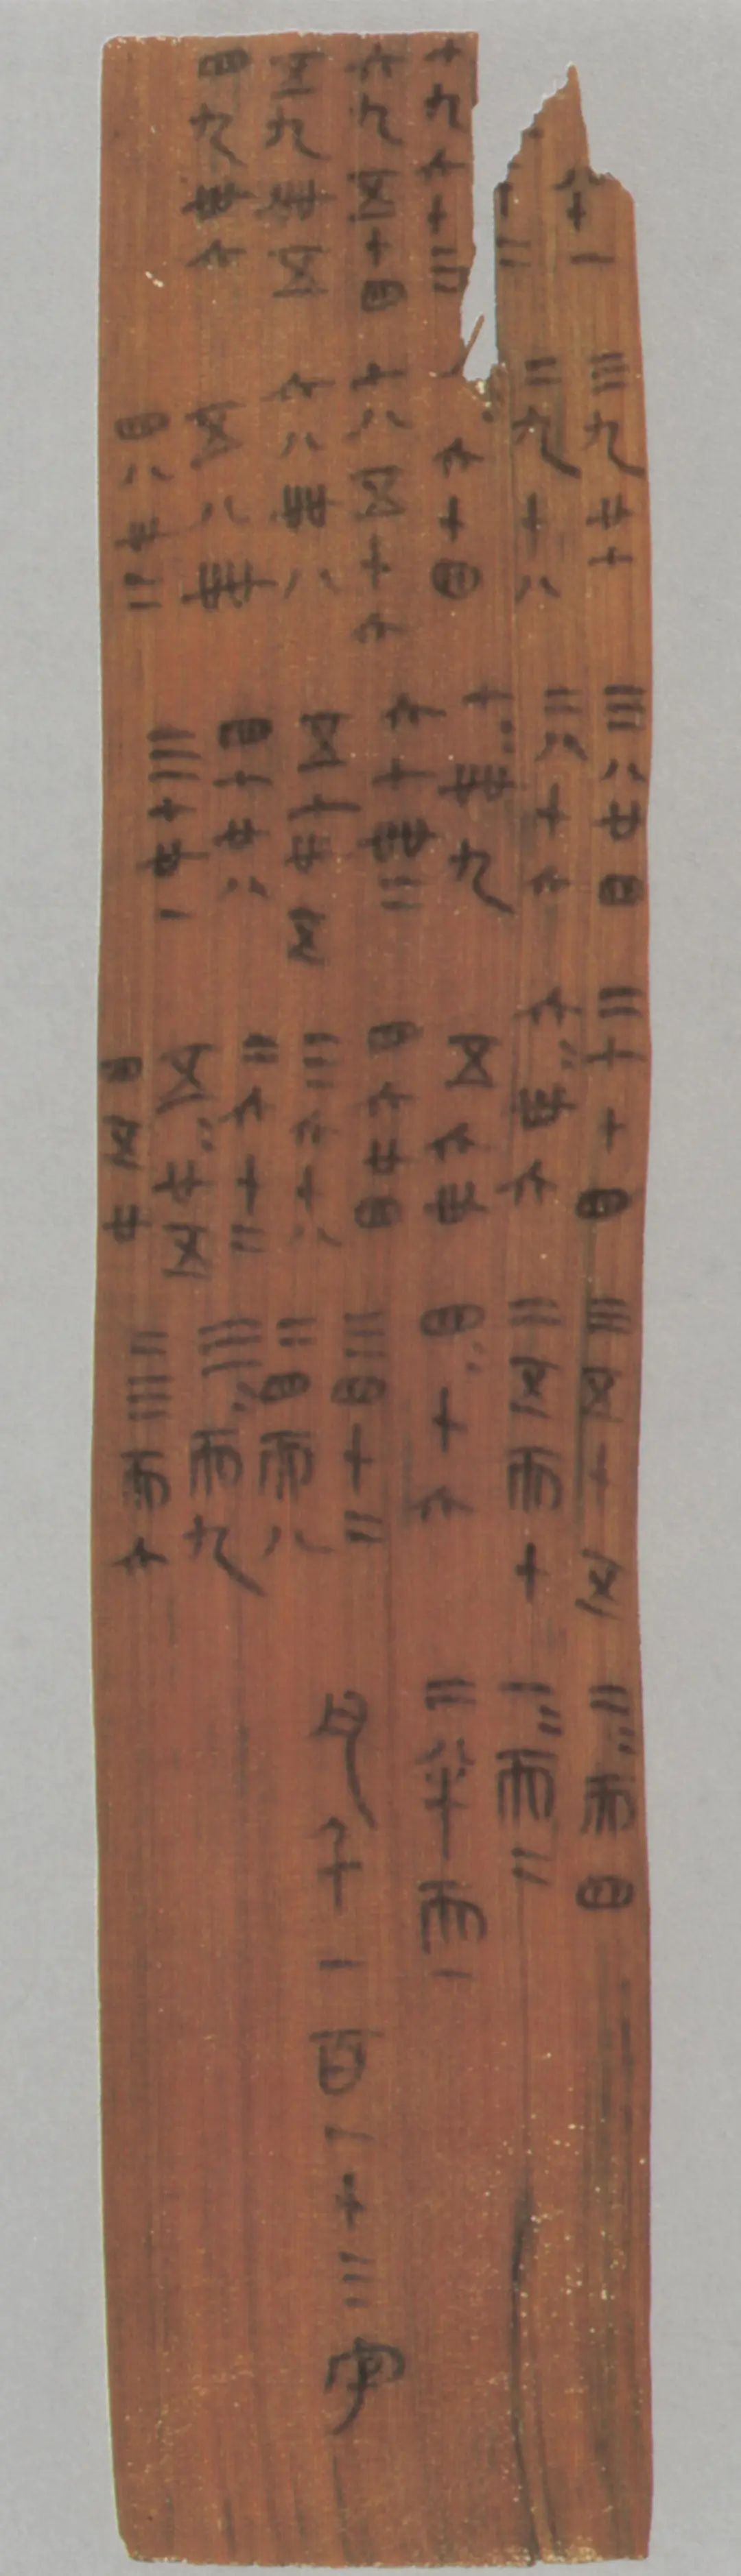 八十一
十二
七九六十三
六九五十四
五九卌五
四九卅六
三九廿七
二九十八
六十四
七八五十六
六八卌八
五八卌
四八卅二
三八廿四
二八十六
七〻卌九
六七卌二
五七卅五
四七廿八
三七廿一
二七十四
六〻卅六
五六卅
四六廿四
三六十八
二六十二
五〻廿五
四五廿
三五十五
二五而十
四〻十六
三四十二
二四而八
三〻而九
二三而六
二〻而四
一〻而二
二半而一
凡千一百一十三字